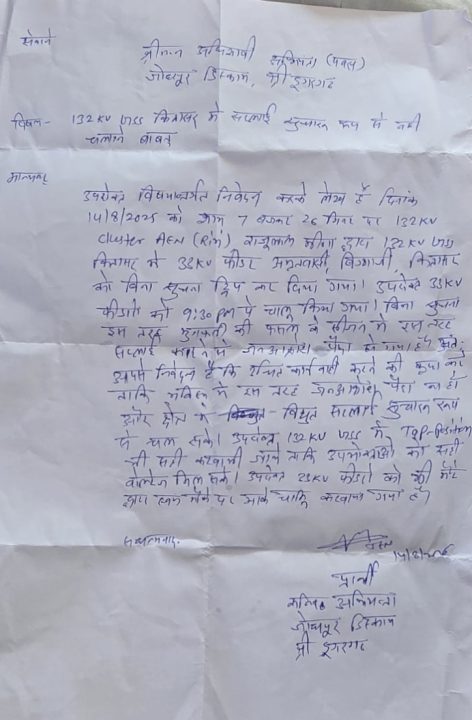 सेवामें
श्रीमान अधिशाषी अभियंता (पवस)
जोधपुर डिस्काम, श्री डूंगरगढ़
विषय- 132 KV GSS कितासर से सप्लाई सुचारू रूप से नहीं
चलाने बाबत्
मान्यवर
उपरोक्त विषयान्तर्गत निवेदन करके लेख है दिनांक
14/8/2025 को शाम 7 बजकर 26 मिनट पर 132 KV
Cluster AEN राजूलाल मीणा द्वारा 132 KV GSS
कितासर से 33 KV फीडर अमृतवासी, बिग्गाजी, कितासर
को बिना सूचना ट्रिप कर दिया गया। उपरोक्त 33 KV
फीडरो को 9:30 pm पे चालू किया गया। बिना सूचना
इस तरह मुंगफली की फसल के सीजन में इस तरह
सप्लाई काटने से जनआक्रोश पैदा हो गया है। अतः
आपसे निवेदन है कि उचित कार्यवाही करने की कृपा करे
ताकि भविष्य में इस तरह जनआक्रोश पैदा ना हो
और क्षेत्र में विद्युत सप्लाई सुचारू रूप
से चल सके। उपरोक्त 132 KV GSS में Tap-Position
भी सही करवायी जावे ताकि उपभोक्ताओ को सही
वोल्टेज मिल सके। उपरोक्त 33 KV फीडरो को भी मेरे
द्वारा स्वयं मौके पर जाके चालू करवाया गया है।
सधन्यवाद.
प्रार्थी
कनिष्ठ अभियन्ता
जोधपुर डिस्काम
श्री डूंगरगढ़